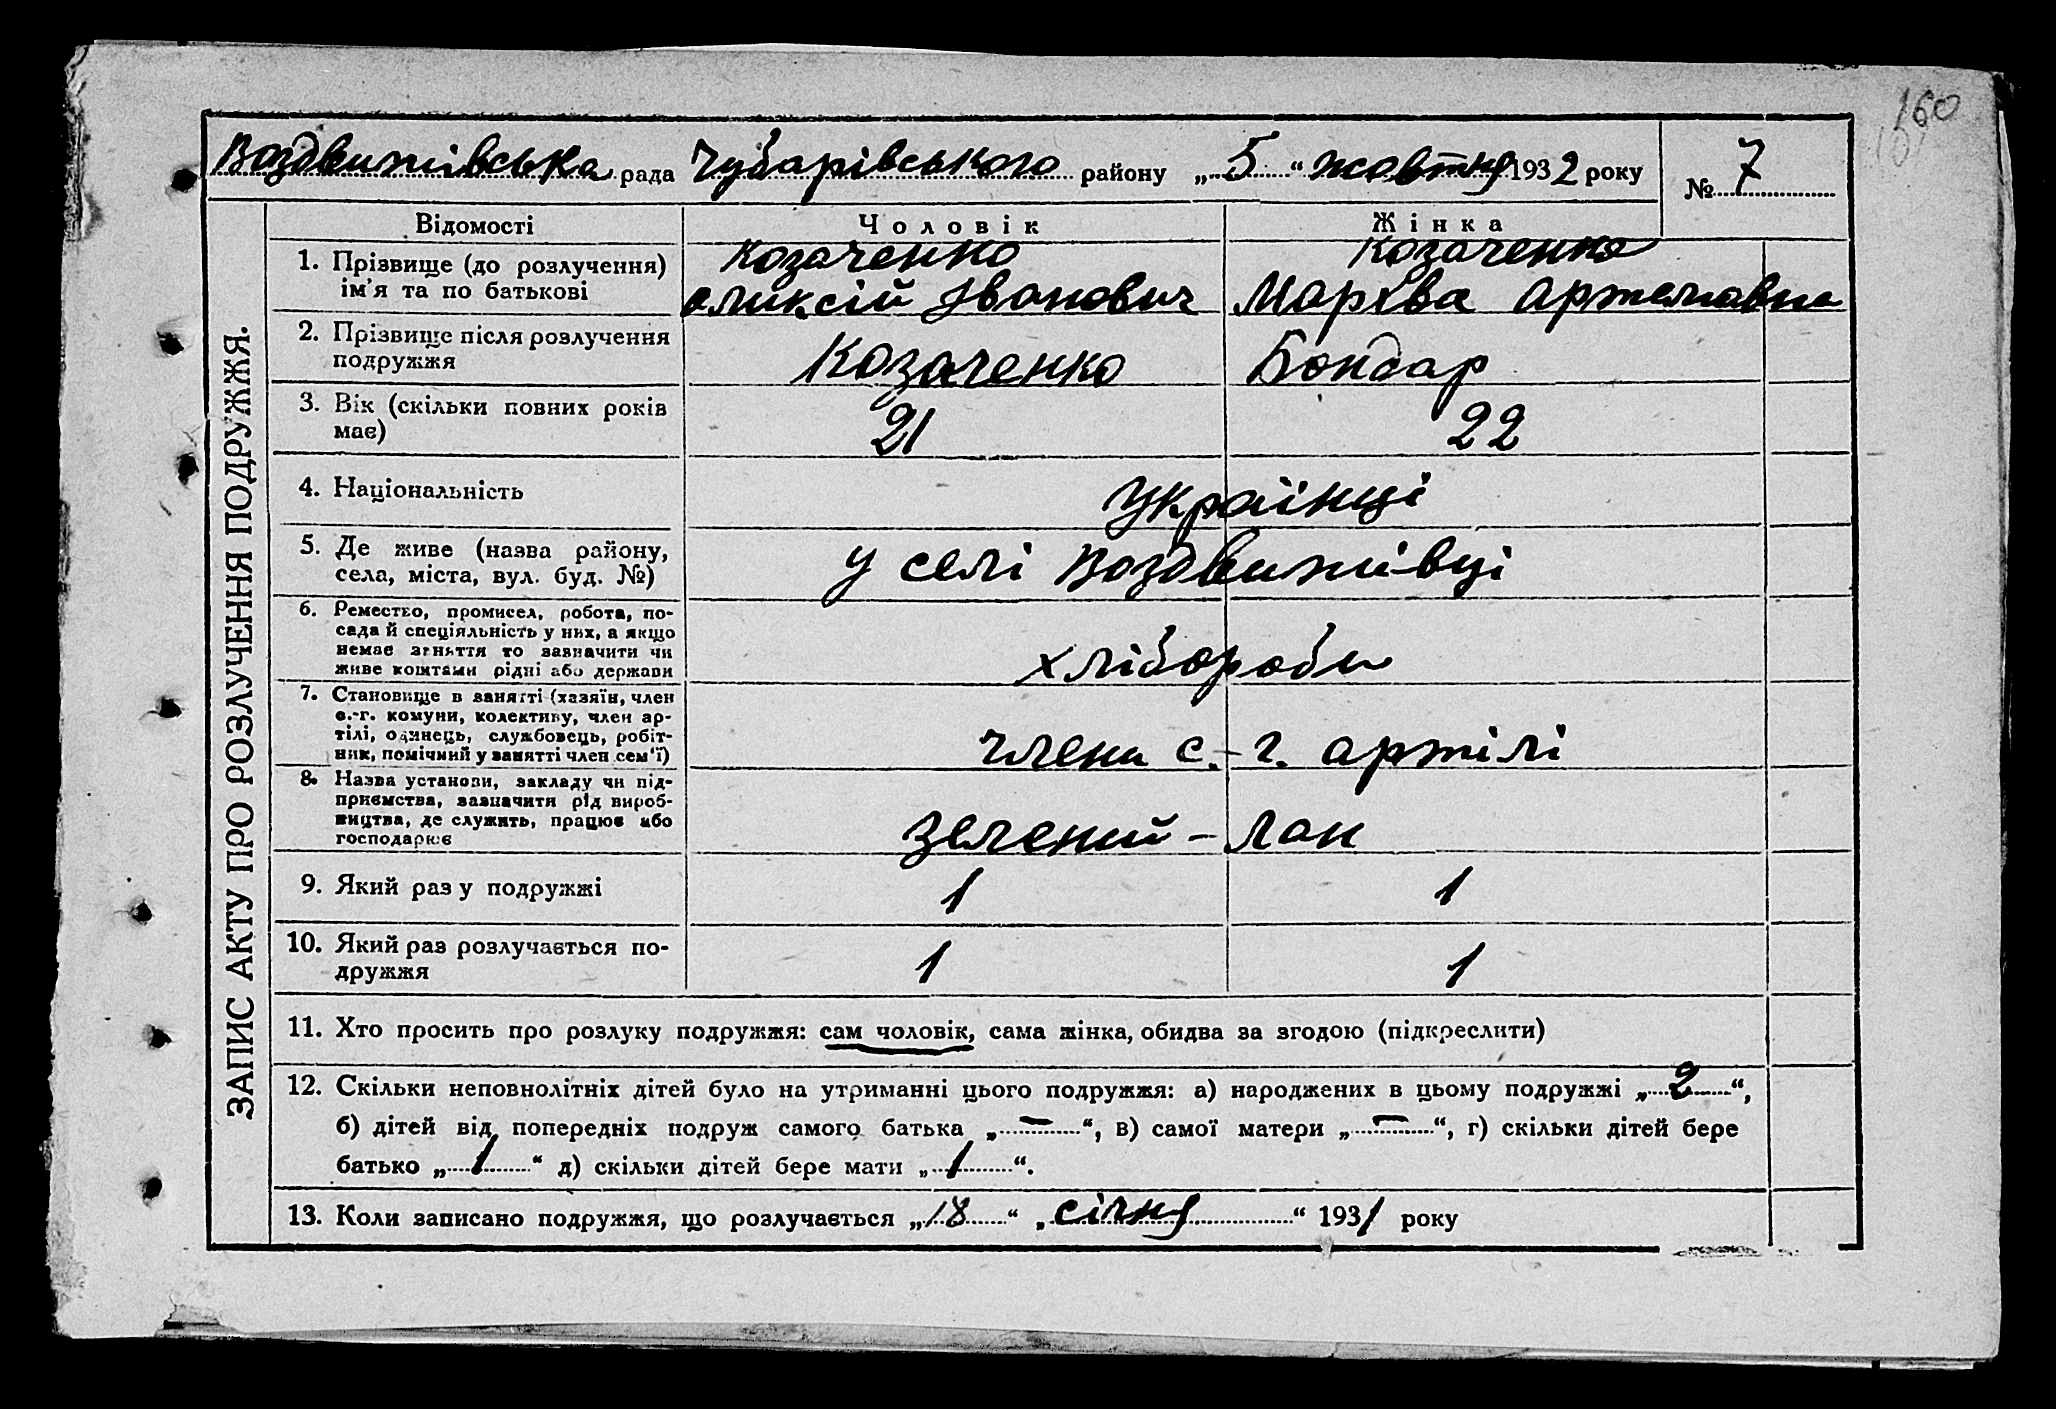 160
Воздвижівська рада Чубарівського району „5“ жовтня 1932 року № 7
ЗАПИС АКТУ ПРО РОЗЛУЧЕННЯ ПОДРУЖЖЯ.
Відомості Чоловік Жінка
1. Прізвище (до розлучення) Козаченко Козаченко
ім'я та по батькові Оликсій Іванович Мархва Артемавна
2. Прізвище після розлучення
подружжя Козаченко Бондар
3. Вік (скільки повних років
має) 21 22
4. Національність Українці
5. Де живе (назва району,
села, міста, вул. буд. №) у селі Воздвижівці
6. Ремество, промисел, робота, по-
сада й спеціяльність у них, а якщо
немає зтняття то зазначити чи
живе коштами рідні або держави хлібороби
7. Становище в занятті (хазяїн, член
с.-г. комуни, колективу, член ар-
тілі, одинець, службовець, робіт-
ник, помічний у занятті член сем'ї) члени с.-г. артілі
8. Назва установи, закладу чи під-
приємства, зазначитя рід вироб-
ництва, де служить, працює або
господарює Зелений - Лан
9. Який раз у подружжі 1 1
10. Який раз розлучається по-
дружжя 1 1
11. Хто просить про розлуку подружжя: сам чоловік, сама жінка, обидва за згодою (підкреслити)
12. Скільки неповнолітніх дітей було на утриманні цього подружжя: а) народжених в цьому подружжі „2“,
б) дітей від попередніх подруж самого батька „—“, в) самої матери „—“, г) скільки дітей бере
батько „1“ д) скільки дітей бере мати „1“.
13. Коли записано подружжя, що розлучається „18“ „січня“ 1931 року